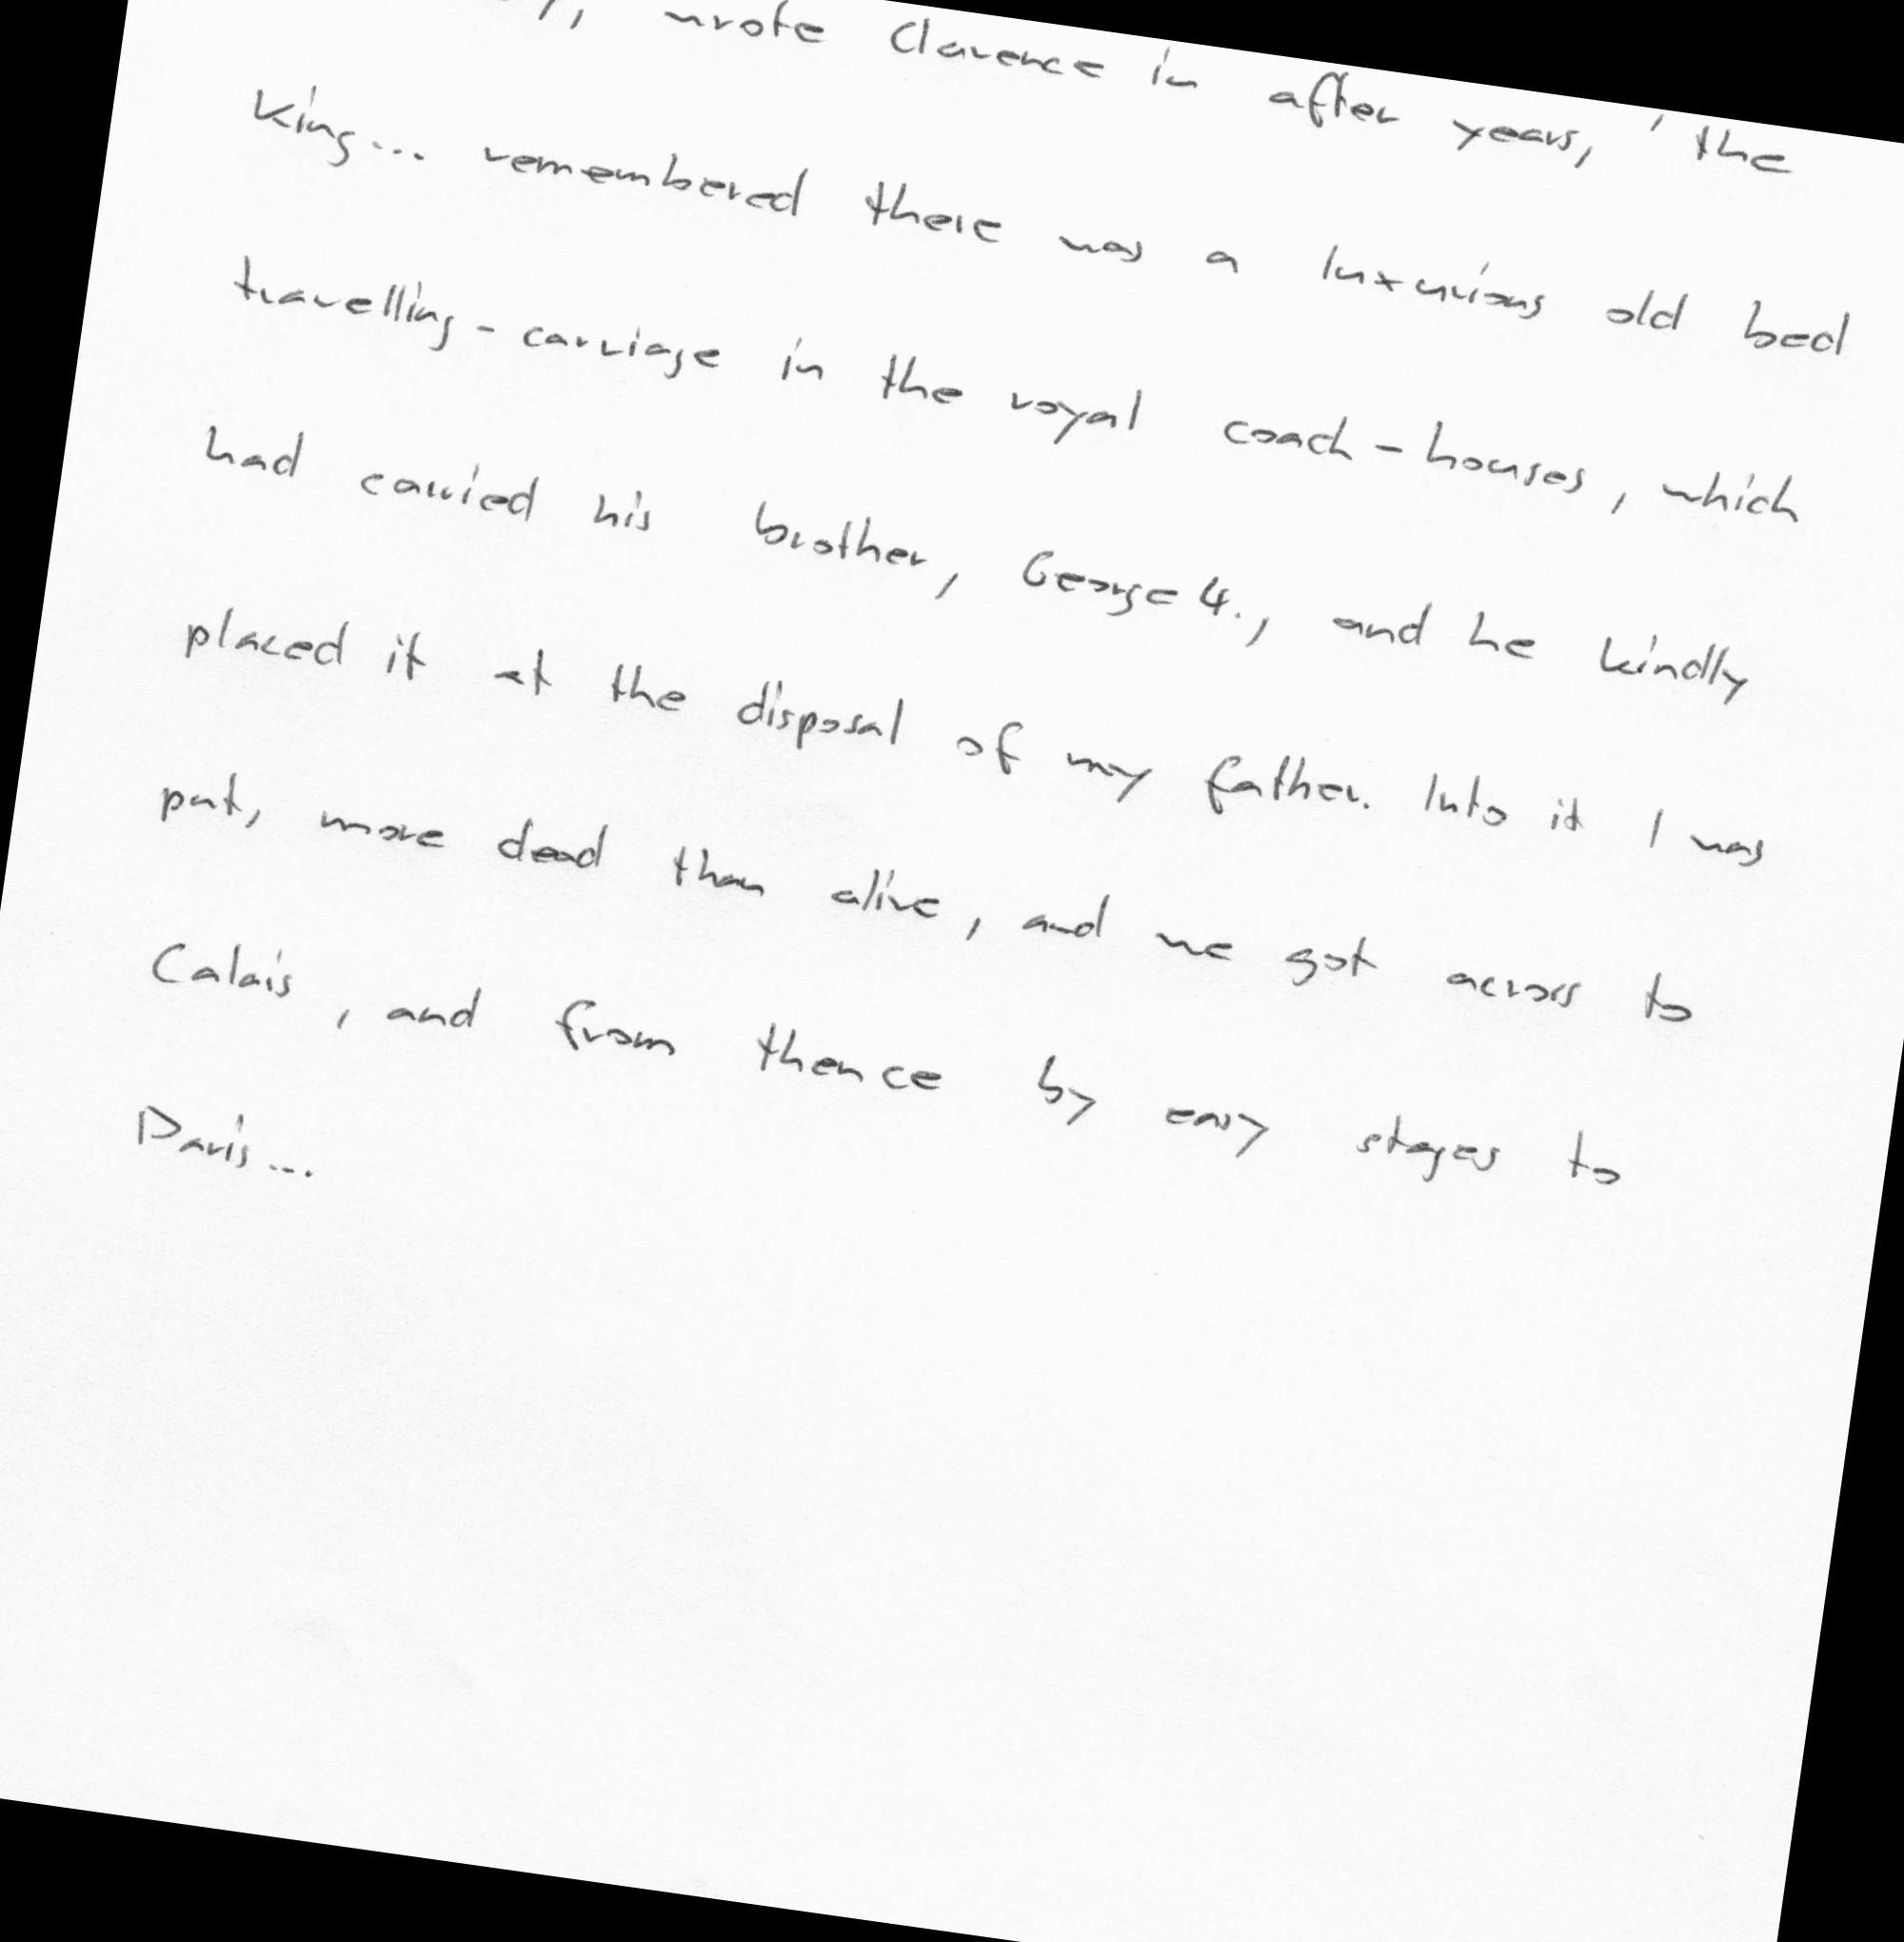 wrote Clarence in after years, ' the
King... remembered there was a luxurious old bed
travelling - carriage in the royal coach - houses, which
had carried his brother, George 4., and he kindly
placed it at the disposal of my father. Into it I was
put, more dead than alive, and we got across to
Calais, and from thence by easy stages to
Paris...